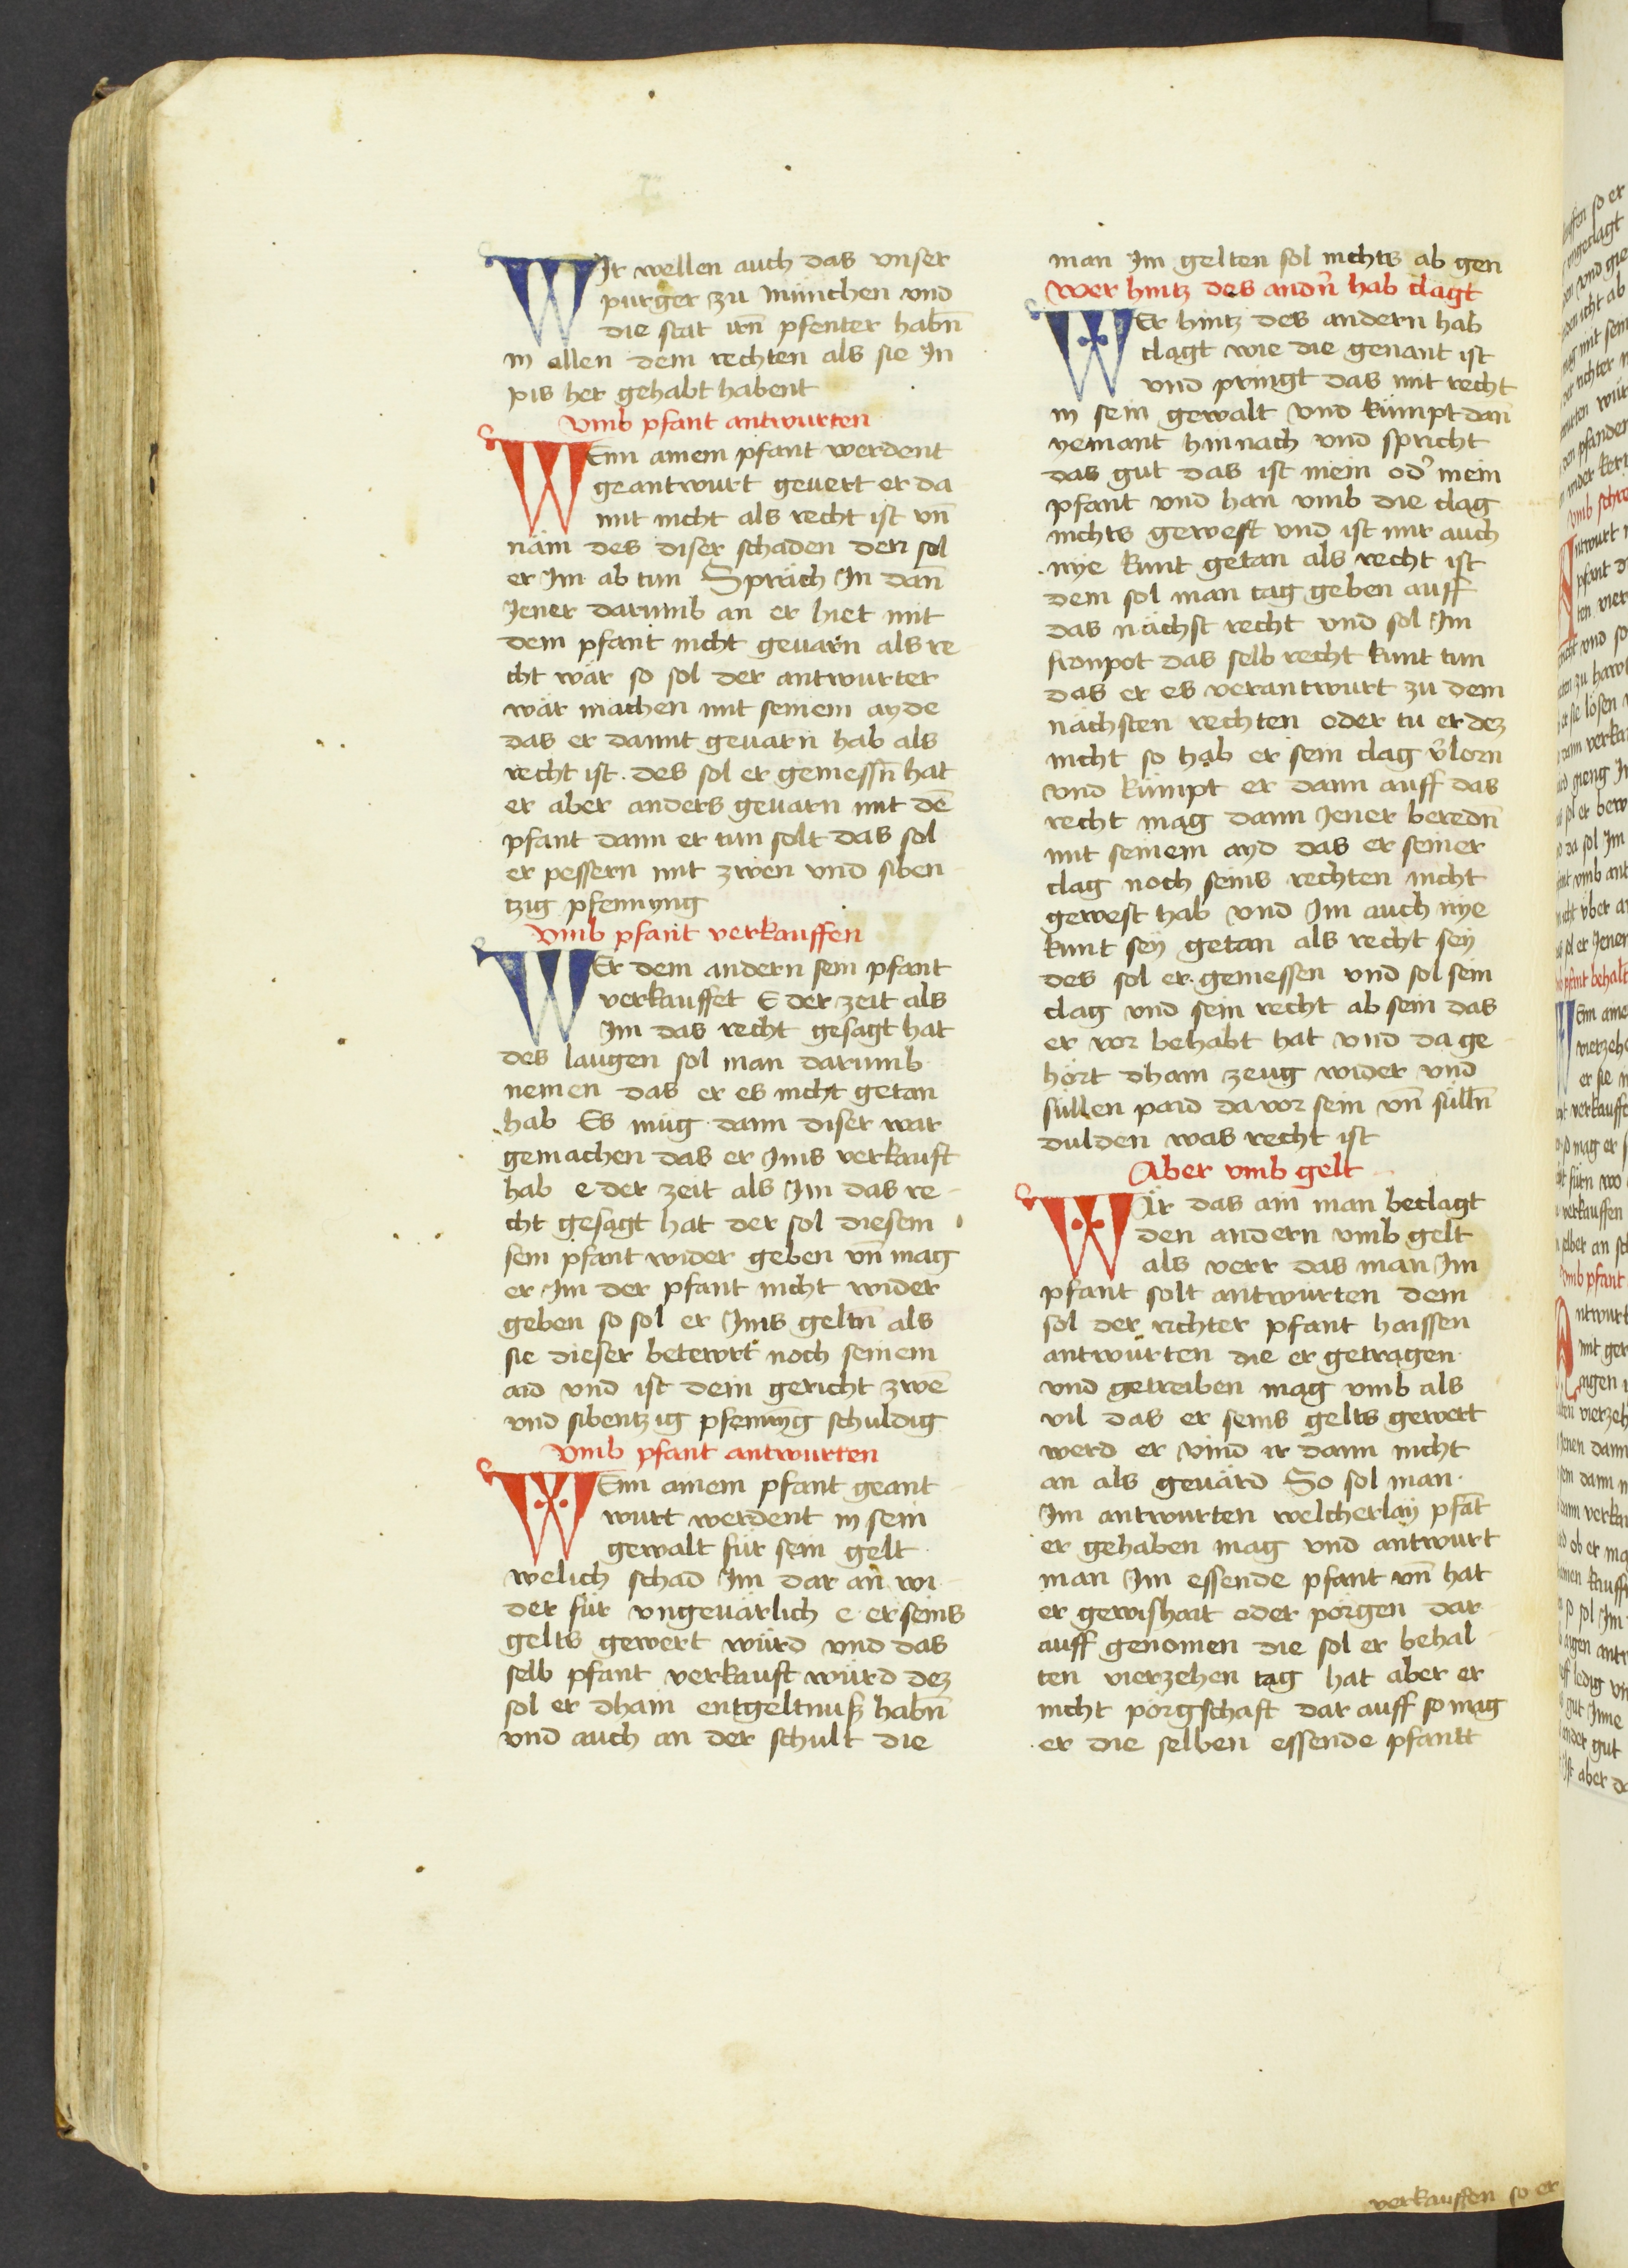 WIr wellen auch das vnser
purger zu münchen vnd
die stat irn̄ pfenter habn̄
in allen dem rechten als sie In
pis her gehabt habent
vmb pfant antwurten
WEnn ainem pfant werdent
geantwurt geuert er da
mit nicht als recht ist vn̄
näm des diser schaden den sol
er Im ab tun Spräch In dan̄
Jener darumb an er hiet mit
dem pfant nicht geuarn als re
cht wär so sol der antwurter
wär machen mit seinem ayde
das er damit geuarn hab als
recht ist des sol er geniessn̄ hat
er aber anders geuarn mit dē
pfant dann er tun solt das sol
er pessern mit zwen vnd siben
tzig pfennyng
vmb pfant verkauffen
WEr dem andern sein pfant
verkauffet E der zeit als
Im das recht gesagt hat
des laugen sol man darumb
nemen das er es nicht getan
hab Es müg dann diser war
gemachen das er Ims verkauft
hab e der zeit als Im das re
cht gesagt hat der sol diesem
sein pfant wider geben vn̄ mag
er Im der pfant nicht wider
geben so sol er Ims geltn̄ als
sie dieser betewrt noch seinem
aid vnd ist dem gericht zwē
vnd sibentzig pfennyg schuldig
vmb pfant antwurten
WEnn ainem pfant geant
wurt werdent in sein
gewalt für sein gelt
welich schad Im dar an wi
der für vngeuärlich e er seins
gelts gewert würd vnd das
selb pfant verkauft würd dez
sol er dhain entgeltnuß habn̄
vnd auch an der schult die
man Im gelten sol nichts ab gen
wer hintz des andn̄ hab clagt
WEr hintz des andern hab
clagt wie die genant ist
vnd pringt das mit recht
in sein gewalt vnd kümpt dan̄
yemant hinnach vnd spricht
das gut das ist mein od̓ mein
pfant vnd han vmb die clag
nichts gewest vnd ist mir auch
nye kunt getan als recht ist
dem sol man tag geben auff
das nächst recht vnd sol Im
fronpot das selb recht kunt tun
das er es verantwurt zu dem
nächsten rechten oder tu er dez
nicht so hab er sein clag v̓lorn
vnd kümpt er dann auff das
recht mag dann Jener beredn̄
mit seinem ayd das er seiner
clag noch seins rechten nicht
gewest hab vnd Im auch nye
kunt sey getan als recht sey
des sol er geniessen vnd sol sein
clag vnd sein recht ab sein das
er vor behabt hat vnd da ge
hört dhain zeug wider vnd
süllen paid da vor sein vn̄ sülln̄
dulden was recht ist
Aber vmb gelt
WÄr das ain man beclagt
den andern vmb gelt
als verr das man Im
pfant solt antwürten dem
sol der richter pfant haissen
antwürten die er getragen
vnd getreiben mag vmb als
vil das er seins gelts gewert
werd er vind ir dann nicht
an als geuärd So sol man
Im antwurten welcherlay pfāt
er gehaben mag vnd antwurt
man Im essende pfant vn̄ hat
er gewishait oder porgen dar
auff genomen die sol er behal
ten vierzehen tag hat aber er
nicht pörgschaft dar auff so mag
er die selben essende pfantt
verkauffen so er